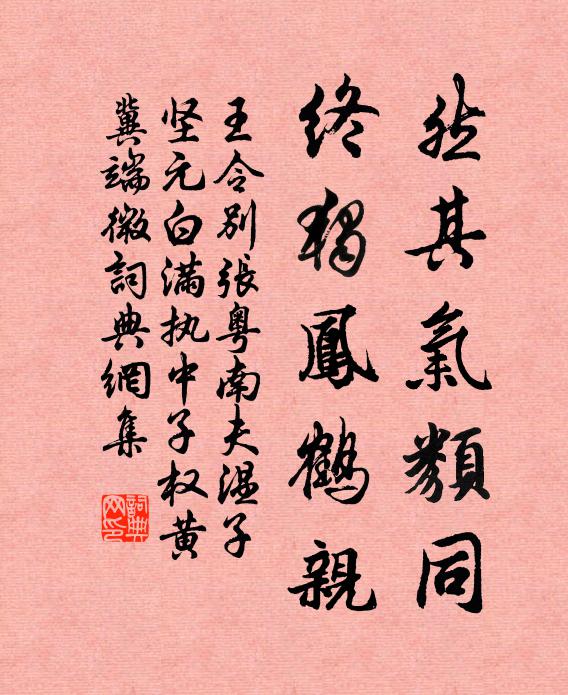 然其氣類同
終獨鳳鶴親
王令别張粵南夫温子
坚元白满执中子权黄
冀端微詞典網集
詞典
网印